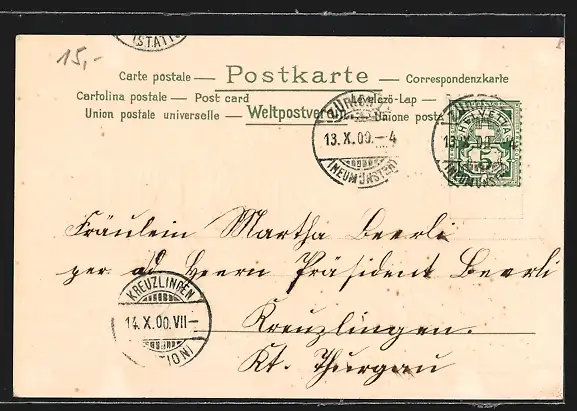 (STATIO
15,-
Carte postale — Postkarte — Correspondenzkarte
Cartolina postale — Post card — Levelező-Lap —
Union postale universelle — Weltpostverein — Unione posta
ZÜRICH
13.X.00.-4
(NEUMÜNSTER)
ZÜRICH
13.X.00.-4
(NEUMÜNSTER)
HELVETIA
5
Fräulein Martha Beerli
per ad Herrn Präsident Beerli
Kreuzlingen.
Kt. Thurgau
KREUZLINGEN
14.X.00.VII-
TION)